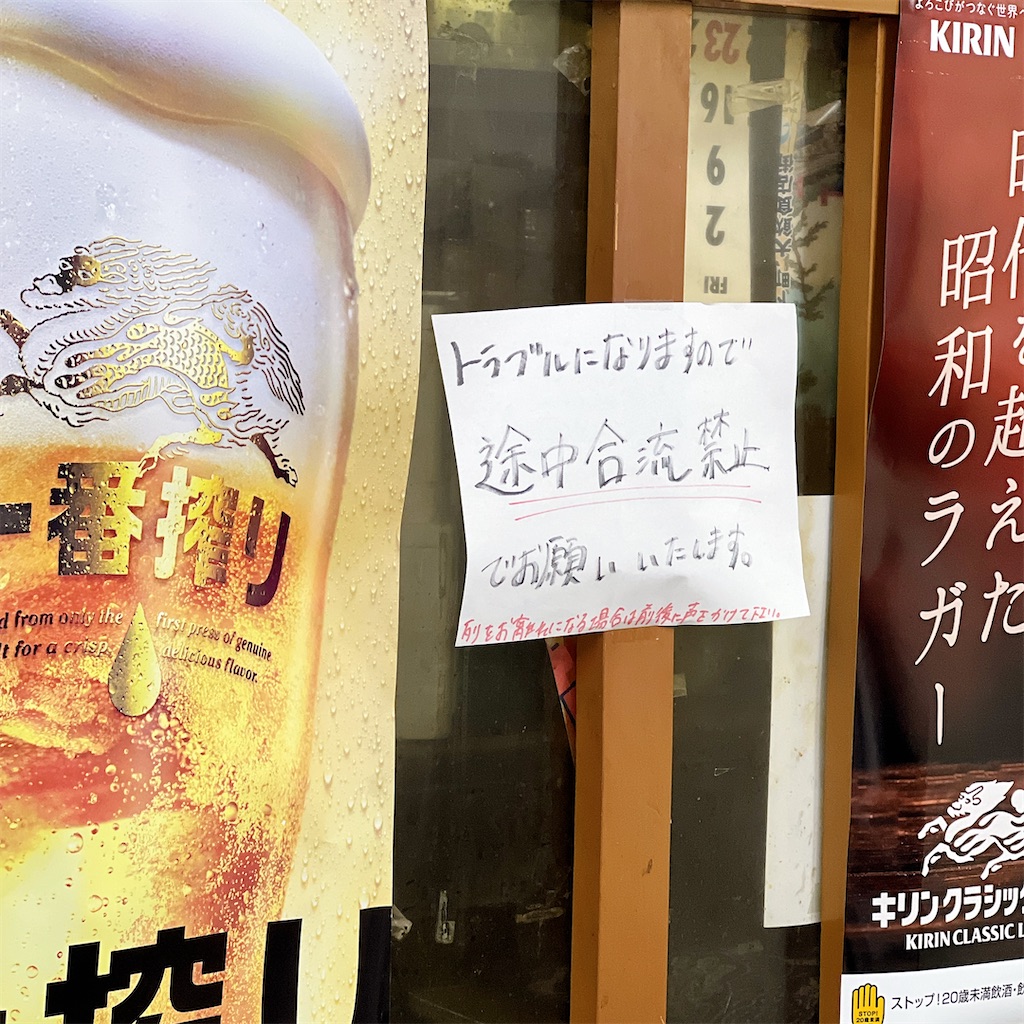 一番搾り
d from only the first press of genuine
lt for a crisp, delicious flavor.
搾り
23
16
9
2
FRI
大飲食店街
トラブルになりますので
途中合流禁止
でお願いいたします。
列をお離れになる場合は前後に声をかけて下さい。
よろこびがつなぐ世界へ
KIRIN
時代を超えた
昭和のラガー
キリンクラシック
KIRIN CLASSIC L
ストップ!20歳未満飲酒・飲
STOP!
20歳未満